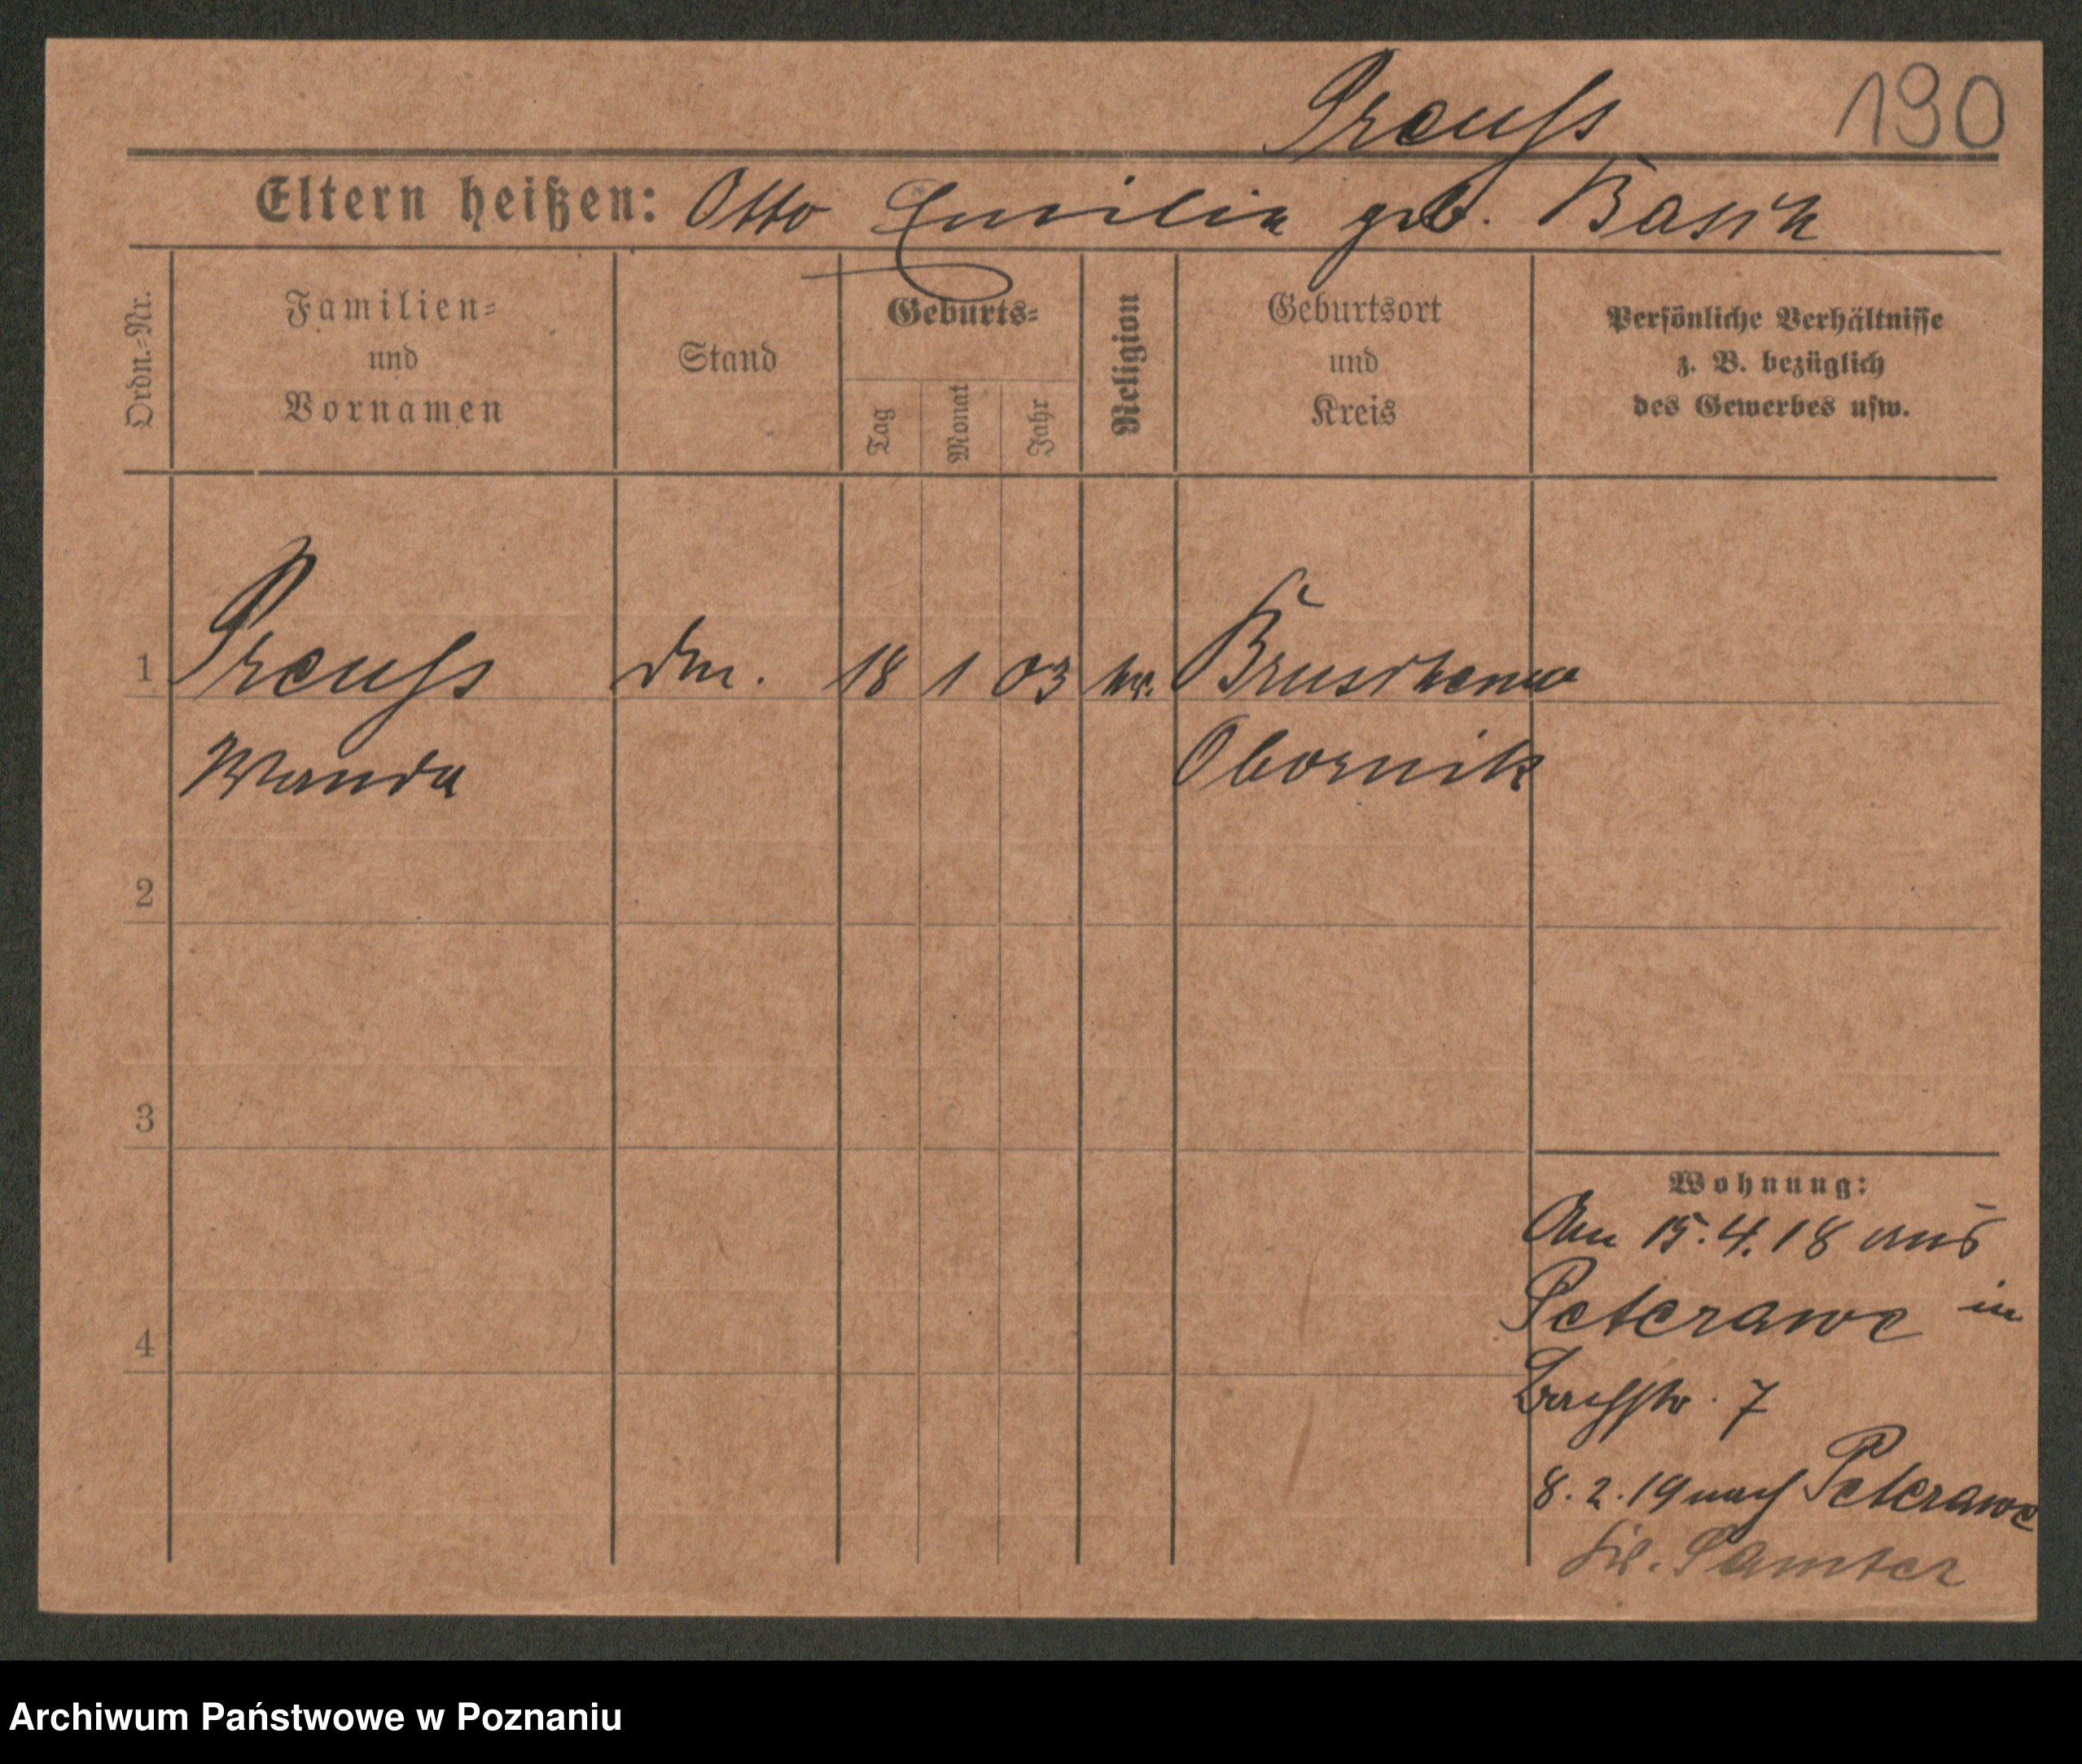 Preuss 190
Eltern heißen: Otto Emilia geb. Basch
Ordn.-Nr.
Familien-
und
Vornamen
Stand
Geburts-
Tag
Monat
Jahr
Religion
Geburtsort
und
Kreis
Persönliche Verhältnisse
z. B. bezüglich
des Gewerbes usw.
1 Preuss 18 1 03
Wanda Obornik
2
3
4
Wohnung:
Am 15.4.18 aus
Peterawe in
Bachstr. 7
8.2.19 nach Peterawe
Kr. Samter
Archiwum Państwowe w Poznaniu